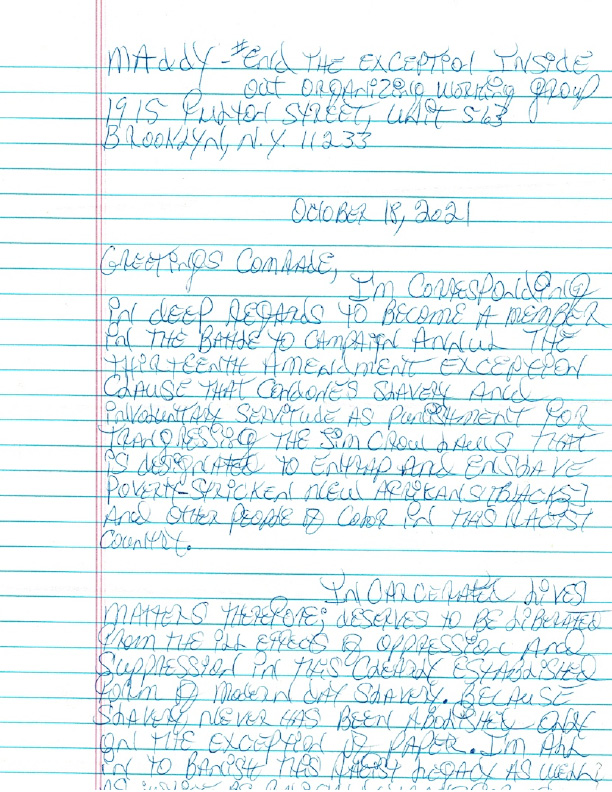 MAddY - #End THE EXCEPTION INSIDE
OUT ORGANIZING WORKING GROUP
1915 FULTON STREET, UNIT 563
BROOKLYN, N.Y. 11233
OCTOBER 18, 2021
GREETINGS COMRADE,
I'M CORRESPONDING
IN DEEP REGARDS TO BECOME A MEMBER
IN THE BATTLE TO CAMPAIN ANNUL THE
THIRTEENTH AMENDMENT EXCEPTION
CLAUSE THAT CONDONES SLAVERY AND
INVOLUNTARY SERVITUDE AS PUNISHMENT FOR
TRANGRESSING THE JIM CROW LAWS THAT
IS DESIGNATED TO ENTRAP AND ENSLAVE
POVERTY-STRICKEN NEW AFRIKANS [BLACKS]
AND OTHER PEOPLE OF COLOR IN THIS RACIST
COUNTRY.
INCARCERATED LIVES
MATTERS THEREFORE; DESERVES TO BE LIBERATED
FROM THE ILL EFFECTS OF OPPRESSION AND
SUPPRESSION IN THIS CLEARLY ESTABLISHED
FORM OF MODERN DAY SLAVERY. BECAUSE
SLAVERY NEVER HAS BEEN ABOLISHED ONLY
ON THE EXCEPTION OF PAPER. I'M ALL
IN TO BANISH THIS RACIST LEGACY AS WELL;
AS